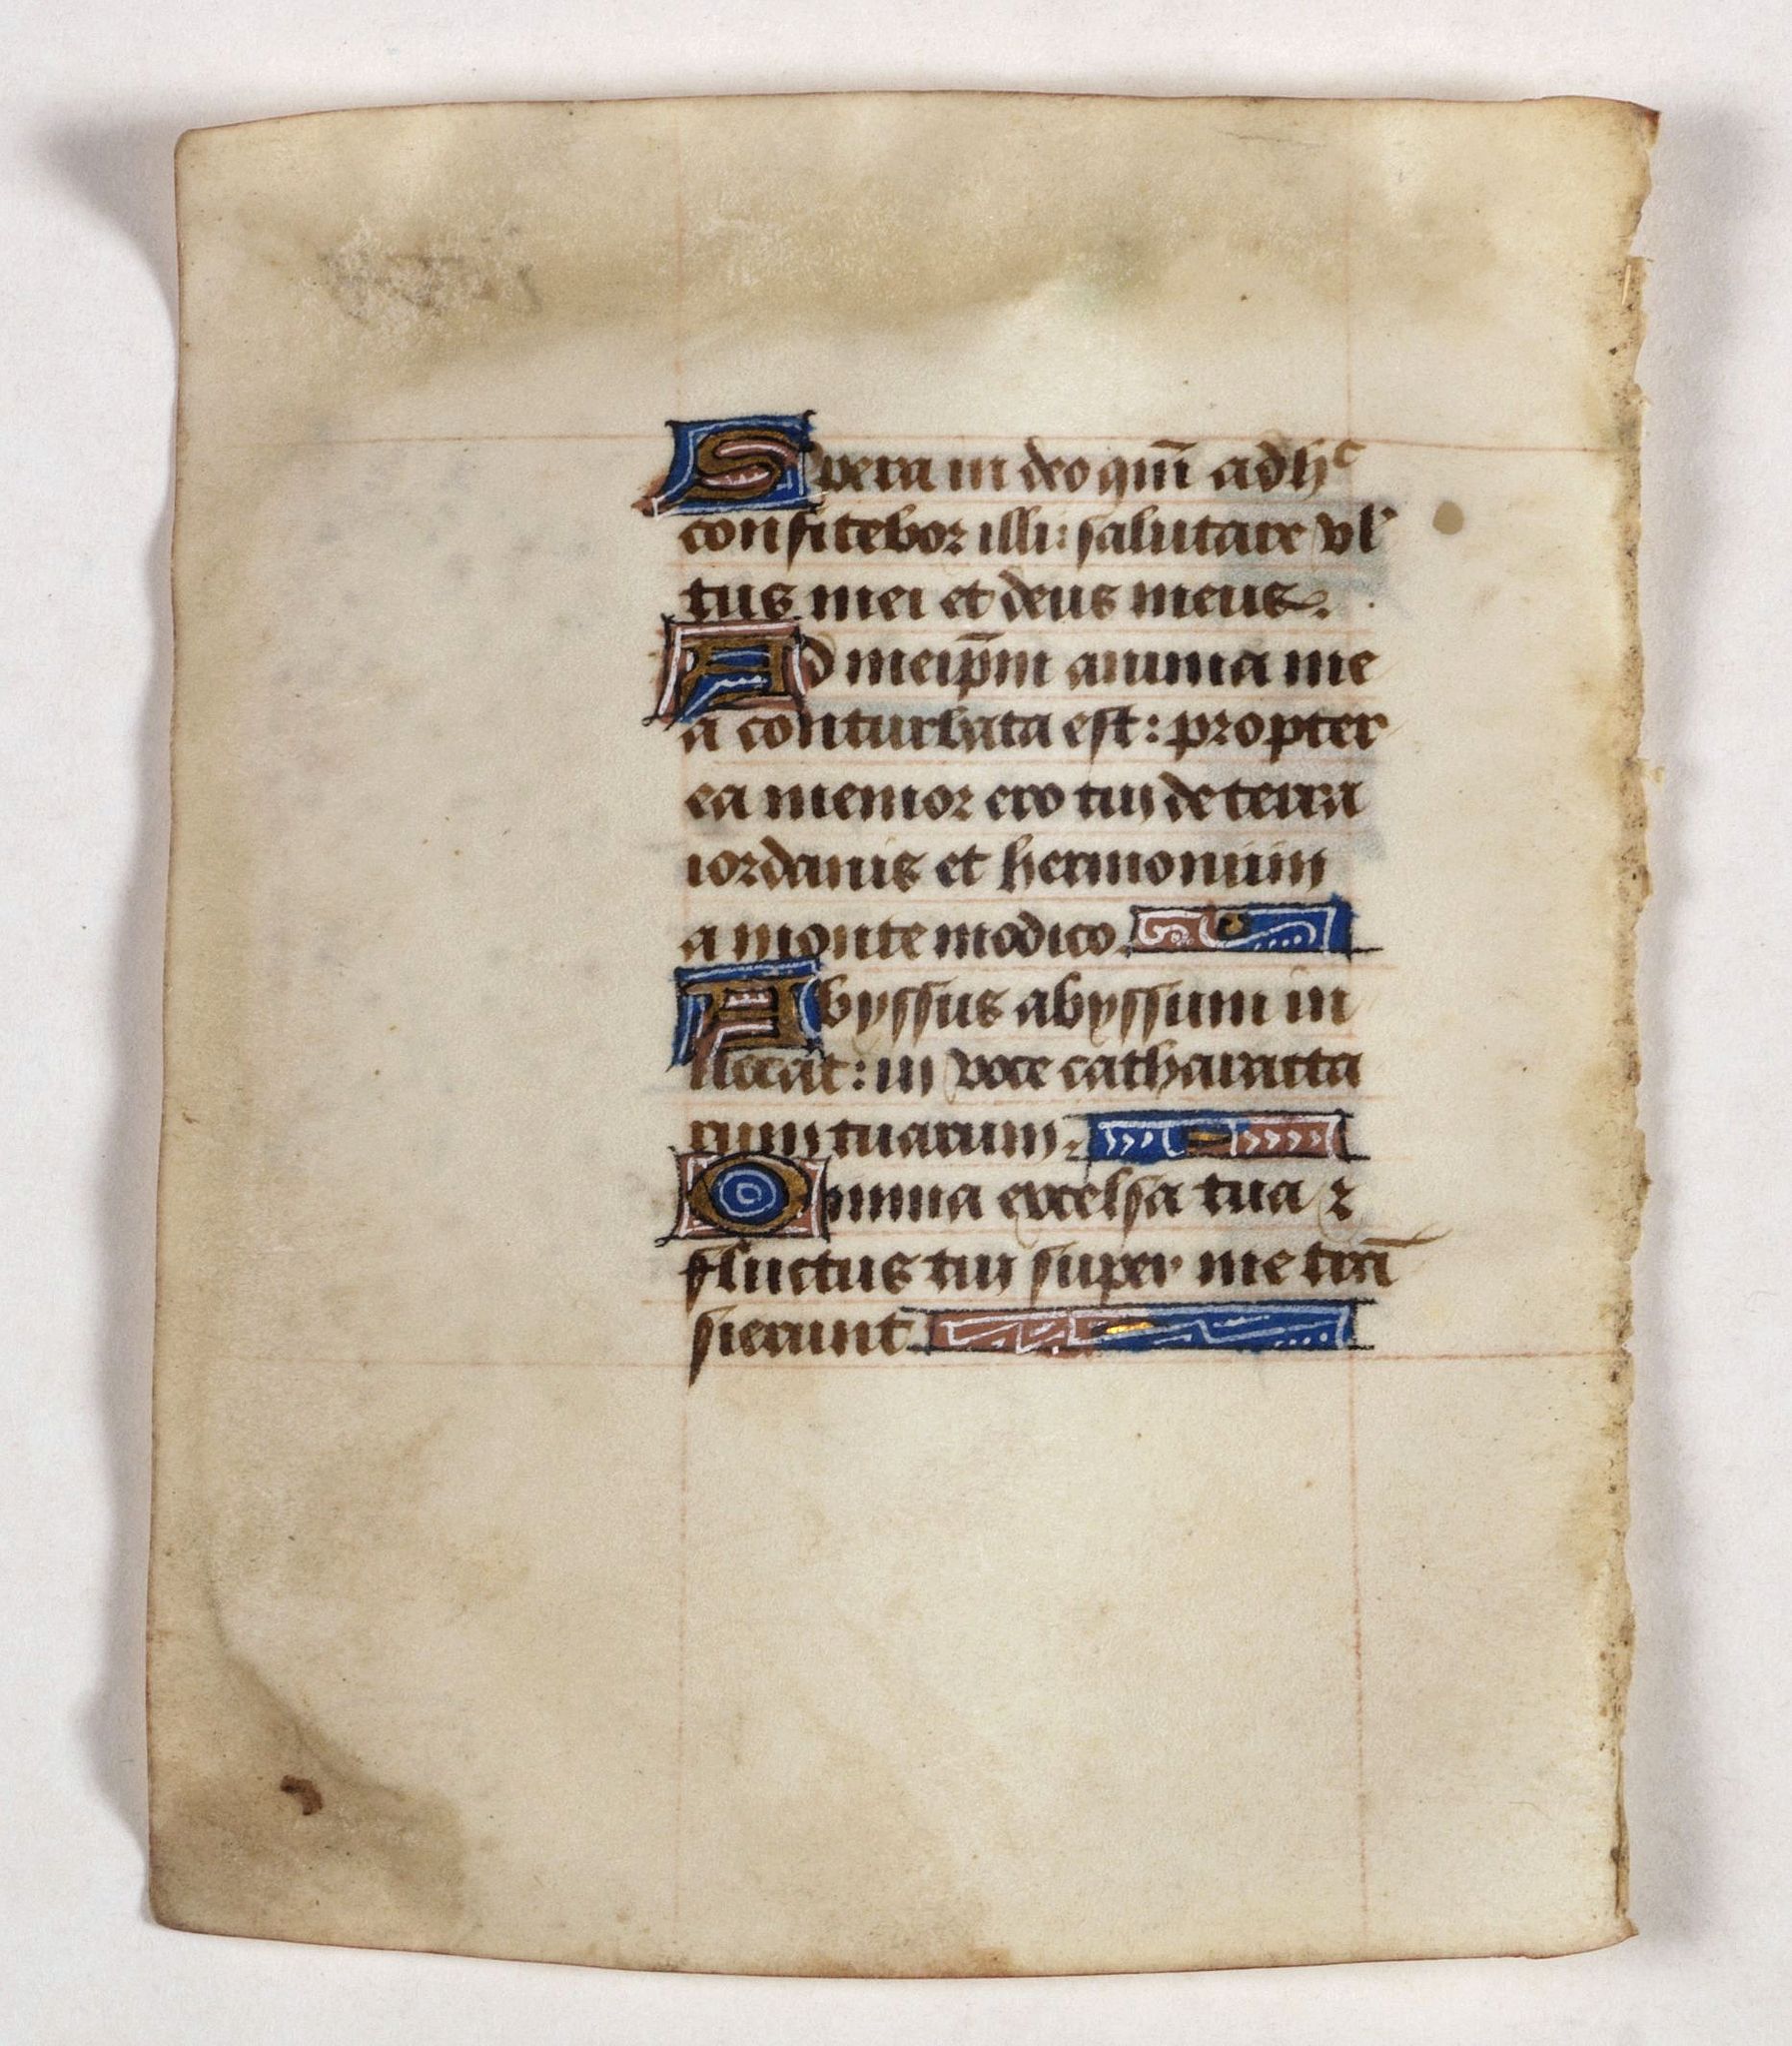 Spera in deo qm̄ adhᶜ
confitebor illi: salutare vl
tus mei et deus meus.
Ad meip̄m anima me
a conturbata est: propter
ea memor ero tui de terra
iordanis et hermoniim
a monte modico.
Abyssus abyssum in
uocat: in voce catharacta
rum tuarum.
Omnia excelsa tua ⁊
fluctus tui super me trā
sierunt.